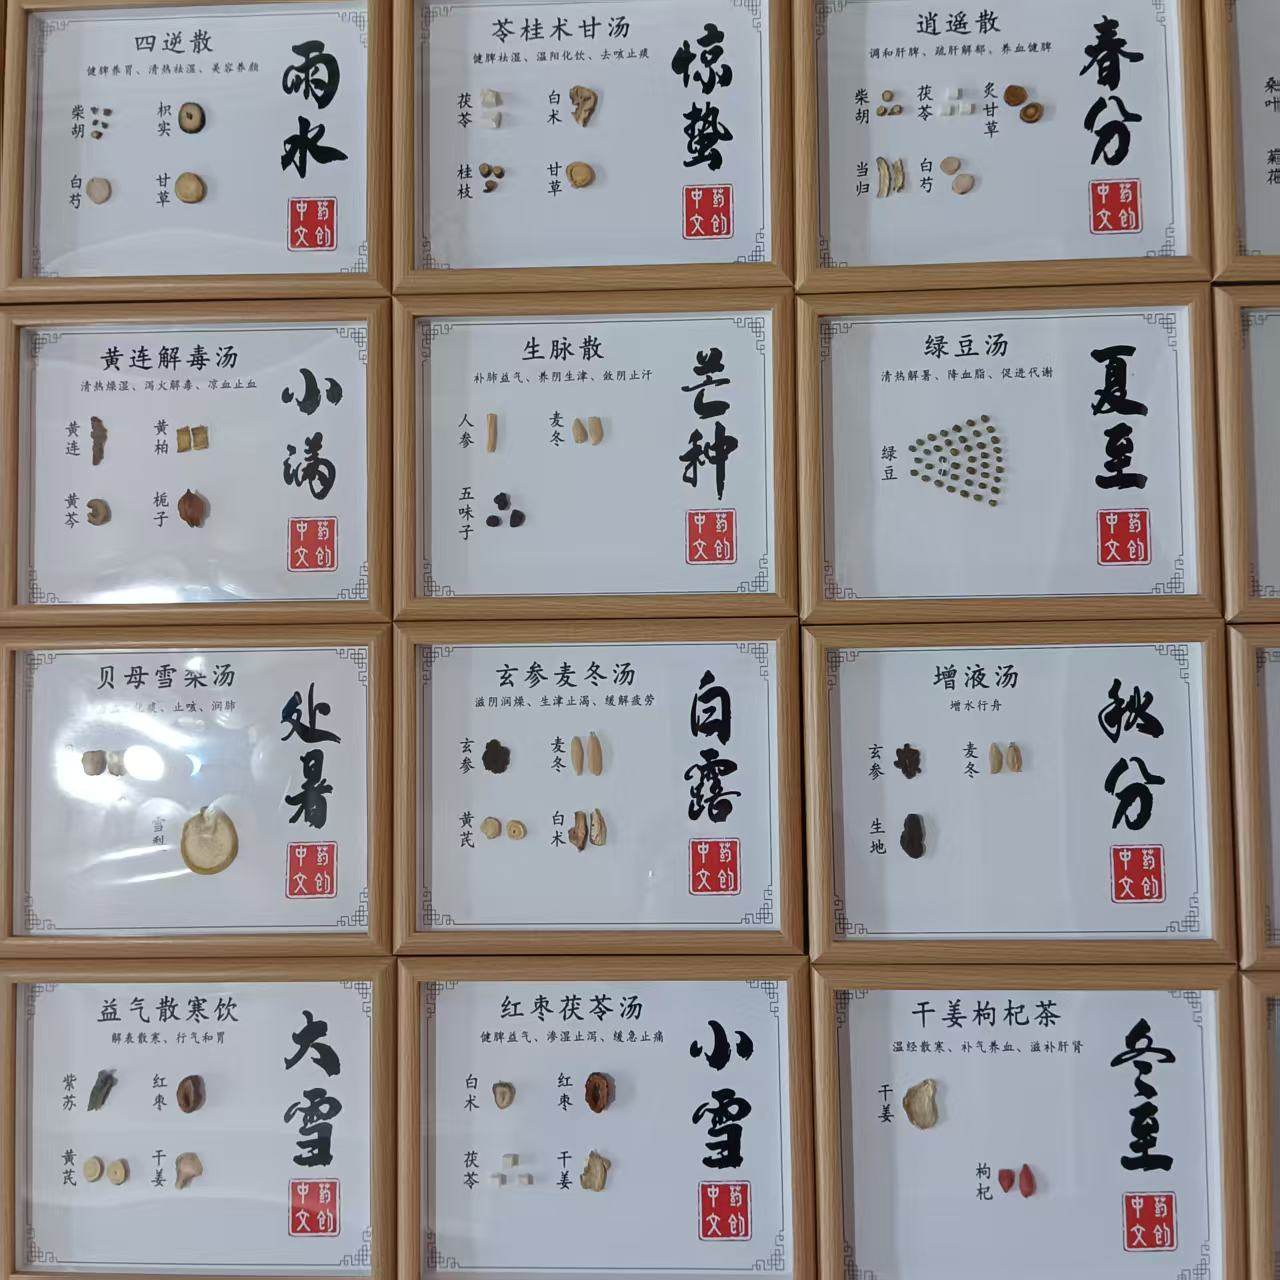 四逆散
健脾养胃、清热祛湿、美容养颜
柴胡
枳实
白芍
甘草
雨水
中药文创
苓桂术甘汤
健脾祛湿、温阳化饮、去咳止痰
茯苓
白术
桂枝
甘草
惊蛰
中药文创
逍遥散
调和肝脾、疏肝解郁、养血健脾
柴胡
茯苓
炙甘草
当归
白芍
春分
中药文创
桑叶
菊花
黄连解毒汤
清热燥湿、泻火解毒、凉血止血
黄连
黄柏
黄芩
栀子
小满
中药文创
生脉散
补肺益气、养阴生津、敛阴止汗
人参
麦冬
五味子
芒种
中药文创
绿豆汤
清热解暑、降血脂、促进代谢
绿豆
夏至
中药文创
贝母雪梨汤
化痰、止咳、润肺
雪梨
处暑
中药文创
玄参麦冬汤
滋阴润燥、生津止渴、缓解疲劳
玄参
麦冬
黄芪
白术
白露
中药文创
增液汤
增水行舟
玄参
麦冬
生地
秋分
中药文创
益气散寒饮
解表散寒、行气和胃
紫苏
红枣
黄芪
干姜
大雪
中药文创
红枣茯苓汤
健脾益气、渗湿止泻、缓急止痛
白术
红枣
茯苓
干姜
小雪
中药文创
干姜枸杞茶
温经散寒、补气养血、滋补肝肾
干姜
枸杞
冬至
中药文创